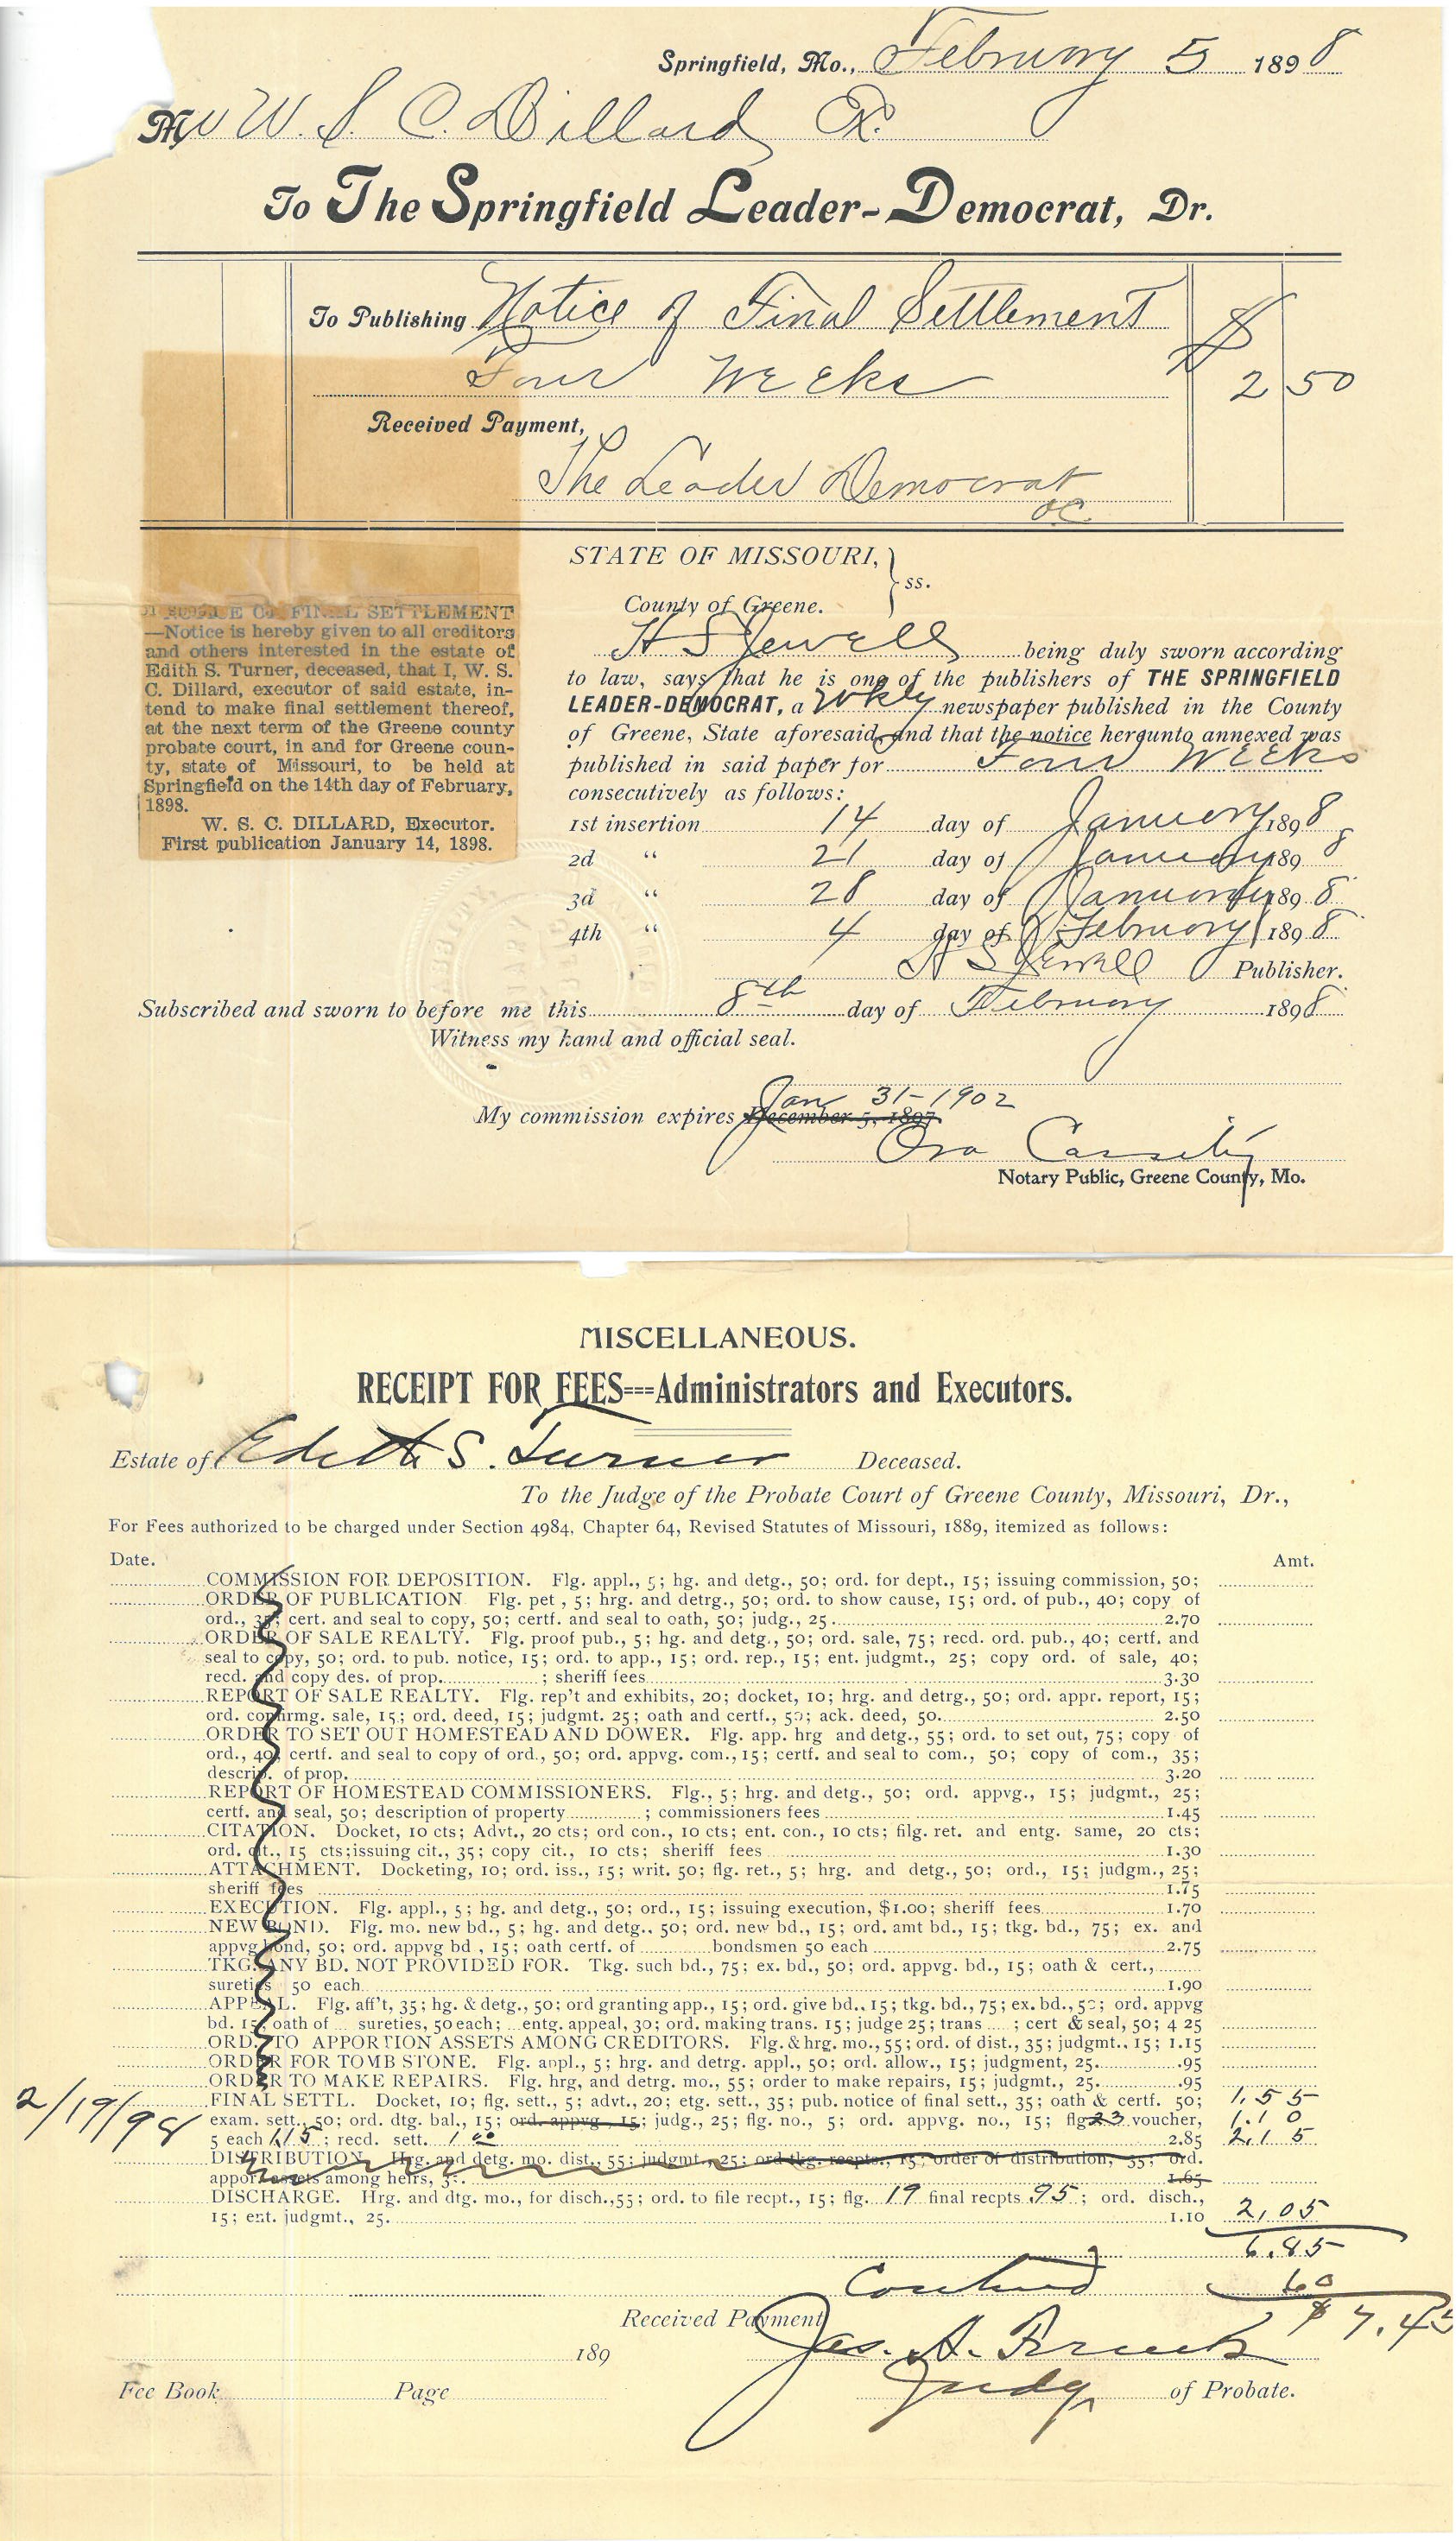 Springfield, Mo., February 5 1898
Mr W. S. C. Dillard Ex.
To The Springfield Leader-Democrat, Dr.
To Publishing Notice of Final Settlement $
Four Weeks 2 50
Received Payment,
The Leader Democrat
OC
NOTICE OF FINAL SETTLEMENT
—Notice is hereby given to all creditors
and others interested in the estate of
Edith S. Turner, deceased, that I, W. S.
C. Dillard, executor of said estate, in-
tend to make final settlement thereof,
at the next term of the Greene county
probate court, in and for Greene coun-
ty, state of Missouri, to be held at
Springfield on the 14th day of February,
1898.
W. S. C. DILLARD, Executor.
First publication January 14, 1898.
STATE OF MISSOURI, } ss.
County of Greene.
H S Jewell being duly sworn according
to law, says that he is one of the publishers of THE SPRINGFIELD
LEADER-DEMOCRAT, a Wkly newspaper published in the County
of Greene, State aforesaid, and that the notice hereunto annexed was
published in said paper for Four Weeks
consecutively as follows:
1st insertion 14 day of January 1898
2d " 21 day of January 1898
3d " 28 day of January 1898
4th " 4 day of February 1898
H S Jewell Publisher.
Subscribed and sworn to before me this 8th day of February 1898
Witness my hand and official seal.
Jan 31-1902
My commission expires December 5, 1897.
Ora Cassity
Notary Public, Greene County, Mo.
MISCELLANEOUS.
RECEIPT FOR FEES===Administrators and Executors.
Estate of Edith S. Turner Deceased.
To the Judge of the Probate Court of Greene County, Missouri, Dr.,
For Fees authorized to be charged under Section 4984, Chapter 64, Revised Statutes of Missouri, 1889, itemized as follows:
Date. Amt.
COMMISSION FOR DEPOSITION. Flg. appl., 5; hg. and detg., 50; ord. for dept., 15; issuing commission, 50;
ORDER OF PUBLICATION Flg. pet , 5; hrg. and detrg., 50; ord. to show cause, 15; ord. of pub., 40; copy of
ord., 35; cert. and seal to copy, 50; certf. and seal to oath, 50; judg., 25 2.70
ORDER OF SALE REALTY. Flg. proof pub., 5; hg. and detg., 50; ord. sale, 75; recd. ord. pub., 40; certf. and
seal to copy, 50; ord. to pub. notice, 15; ord. to app., 15; ord. rep., 15; ent. judgmt., 25; copy ord. of sale, 40;
recd. and copy des. of prop. ; sheriff fees 3.30
REPORT OF SALE REALTY. Flg. rep't and exhibits, 20; docket, 10; hrg. and detrg., 50; ord. appr. report, 15;
ord. confirmg. sale, 15; ord. deed, 15; judgmt. 25; oath and certf., 50; ack. deed, 50. 2.50
ORDER TO SET OUT HOMESTEAD AND DOWER. Flg. app. hrg and detg., 55; ord. to set out, 75; copy of
ord., 40; certf. and seal to copy of ord., 50; ord. appvg. com., 15; certf. and seal to com., 50; copy of com., 35;
descrip. of prop. 3.20
REPORT OF HOMESTEAD COMMISSIONERS. Flg., 5; hrg. and detg., 50; ord. appvg., 15; judgmt., 25;
certf. and seal, 50; description of property ; commissioners fees 1.45
CITATION. Docket, 10 cts; Advt., 20 cts; ord con., 10 cts; ent. con., 10 cts; filg. ret. and entg. same, 20 cts;
ord. cit., 15 cts;issuing cit., 35; copy cit., 10 cts; sheriff fees 1.30
ATTACHMENT. Docketing, 10; ord. iss., 15; writ. 50; flg. ret., 5; hrg. and detg., 50; ord., 15; judgm., 25;
sheriff fees 1.75
EXECUTION. Flg. appl., 5; hg. and detg., 50; ord., 15; issuing execution, $1.00; sheriff fees 1.70
NEW BOND. Flg. mo. new bd., 5; hg. and detg., 50; ord. new bd., 15; ord. amt bd., 15; tkg. bd., 75; ex. and
appvg bond, 50; ord. appvg bd , 15; oath certf. of bondsmen 50 each 2.75
TKG. ANY BD. NOT PROVIDED FOR. Tkg. such bd., 75; ex. bd., 50; ord. appvg. bd., 15; oath & cert.,
sureties 50 each 1.90
APPEAL. Flg. aff't, 35; hg. & detg., 50; ord granting app., 15; ord. give bd., 15; tkg. bd., 75; ex. bd., 50; ord. appvg
bd. 15; oath of sureties, 50 each; entg. appeal, 30; ord. making trans. 15; judge 25; trans ; cert & seal, 50; 4 25
ORD. TO APPORTION ASSETS AMONG CREDITORS. Flg. & hrg. mo., 55; ord. of dist., 35; judgmt., 15; 1.15
ORDER FOR TOMB STONE. Flg. appl., 5; hrg. and detrg. appl., 50; ord. allow., 15; judgment, 25. .95
ORDER TO MAKE REPAIRS. Flg. hrg, and detrg. mo., 55; order to make repairs, 15; judgmt., 25. .95
2/19/98 FINAL SETTL. Docket, 10; flg. sett., 5; advt., 20; etg. sett., 35; pub. notice of final sett., 35; oath & certf. 50; 1.55
exam. sett., 50; ord. dtg. bal., 15; ord. appvg., 15; judg., 25; flg. no., 5; ord. appvg. no., 15; flg 23 voucher, 1.10
5 each 1.15; recd. sett. 1 00 2.85 2.15
DISTRIBUTION. Hrg. and detg. mo. dist., 55; judgmt., 25; ord tkg. recpts., 15; order of distribution, 35; ord.
appor. assets among heirs, 35. 1.65
DISCHARGE. Hrg. and dtg. mo., for disch.,55; ord. to file recpt., 15; flg. 19 final recpts 95; ord. disch.,
15; ent. judgmt., 25. 1.10 2.05
6.85
60
Received Payment $7.45
Jas. A.
189
Fee Book Page Judge of Probate.